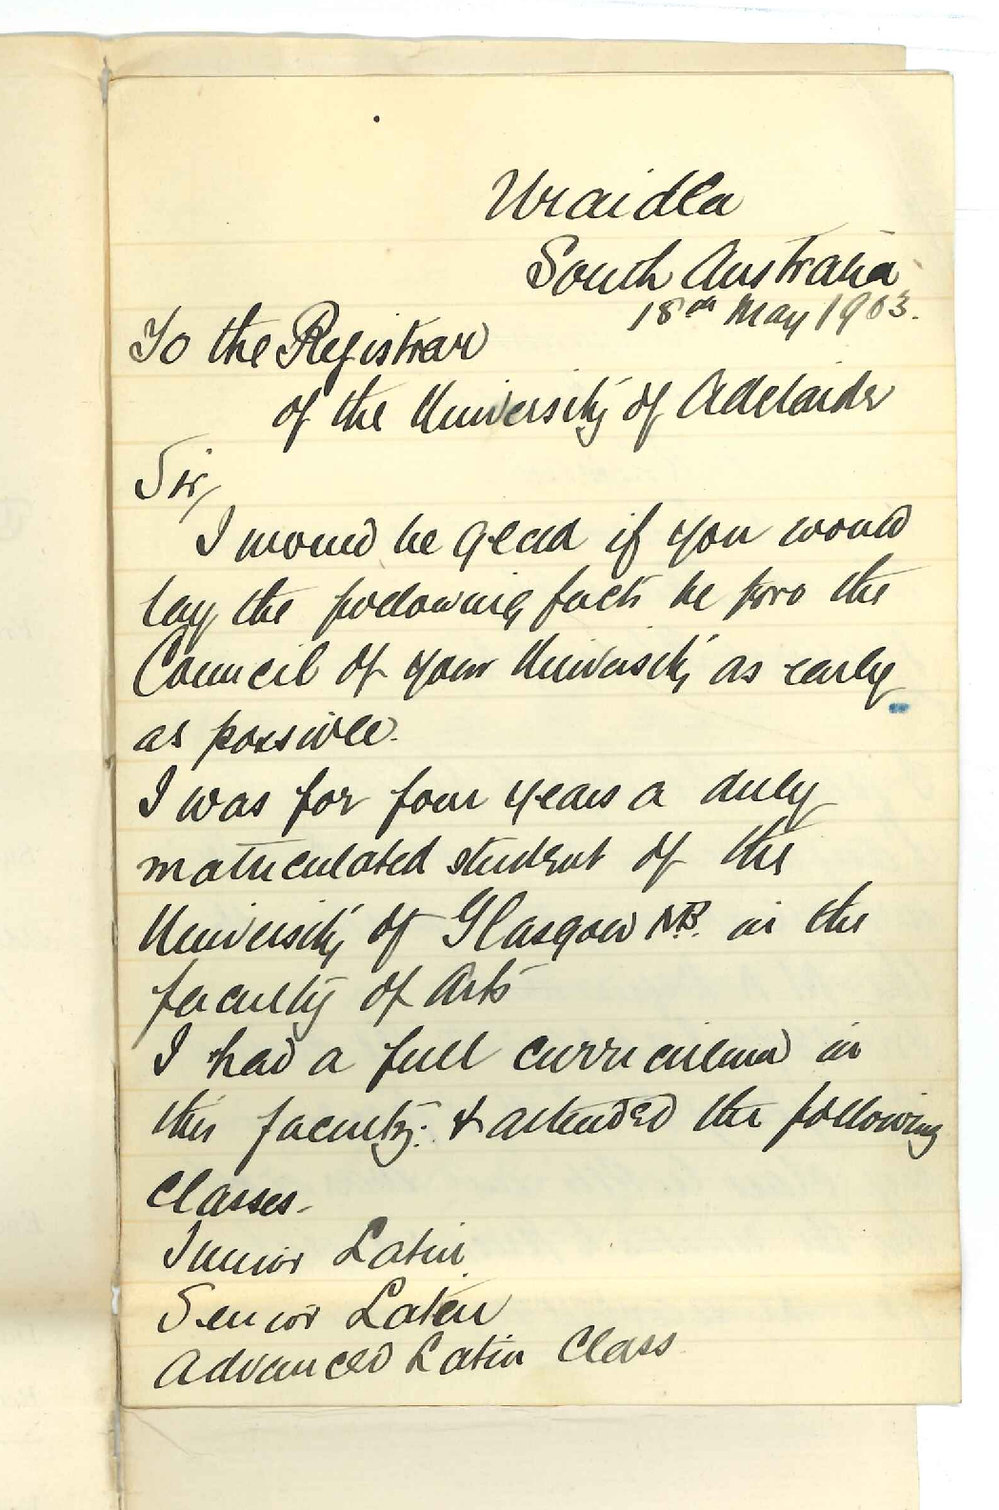 Uraidla
South Australia
18th May 1903.
To the Registrar
of the University of Adelaide
Sir,
I would be glad if you would
lay the following facts before the
Council of your University as early
as possible.
I was for four years a duly
matriculated student of the
University of Glasgow N.B. in the
faculty of Arts
I had a full curriculum in
this faculty. & attended the following
classes.
Junior Latin
Senior Latin
Advanced Latin Class